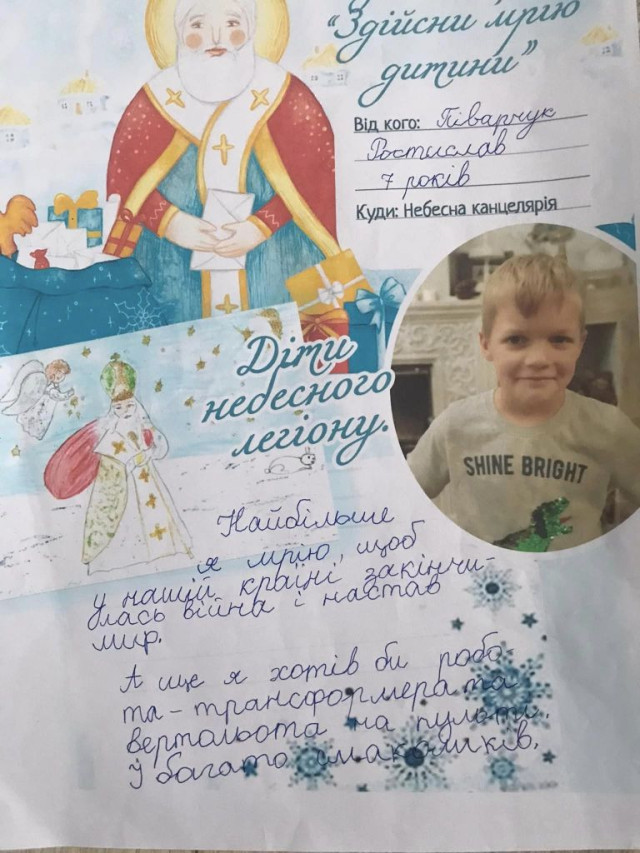 "Здійсни мрію
дитини"
Від кого: Піварчук
Ростислав
7 років
Куди: Небесна канцелярія
Діти
небесного
легіону.
SHINE BRIGHT
Найбільше
я мрію, щоб
у нашій країні закінчи-
лась війна і настав
мир.
А ще я хотів би робо-
та-трансформера та
вертольота на пульті.
І багато смаколиків.